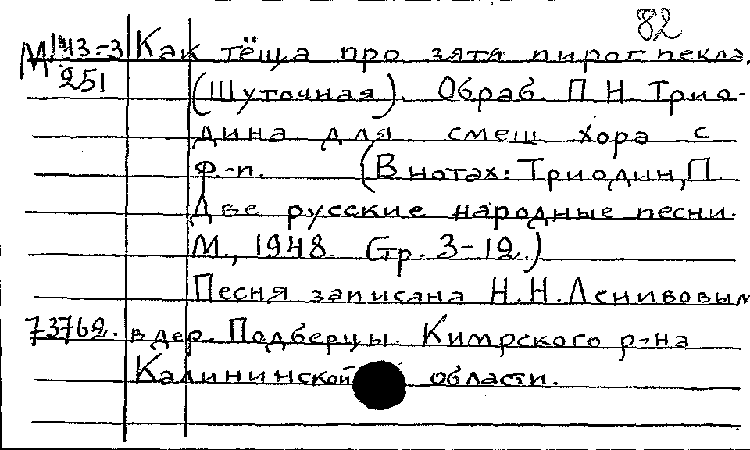 82
М 143-3 Как тёща про зятя пирог пекла.
251 (Шуточная). Обраб. П. Н. Трио-
дина для смеш. хора с
ф-п. (В нотах: Триодин, П.
Две русские народные песни.
М., 1948. Стр. 3-12.)
Песня записана Н. Н. Ленивовым
73762. в дер. Подберцы Кимрского р-на
Калининской области.